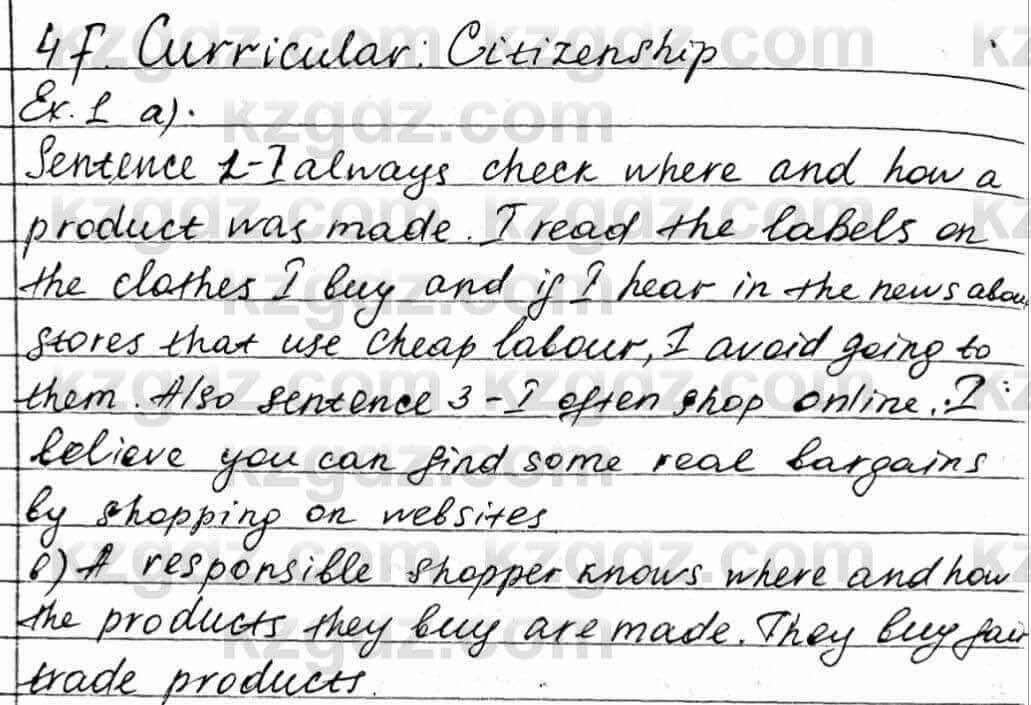 4f. Curricular: Citizenship
Ex. 1 a).
Sentence 1-I always check where and how a
product was made. I read the labels on
the clothes I buy and if I hear in the news abou
stores that use cheap labour, I avoid going to
them. Also sentence 3 - I often shop online. I
believe you can find some real bargains
by shopping on websites
b) A responsible shopper knows where and how
the products they buy are made. They buy fair
trade products.
kzgdz.com